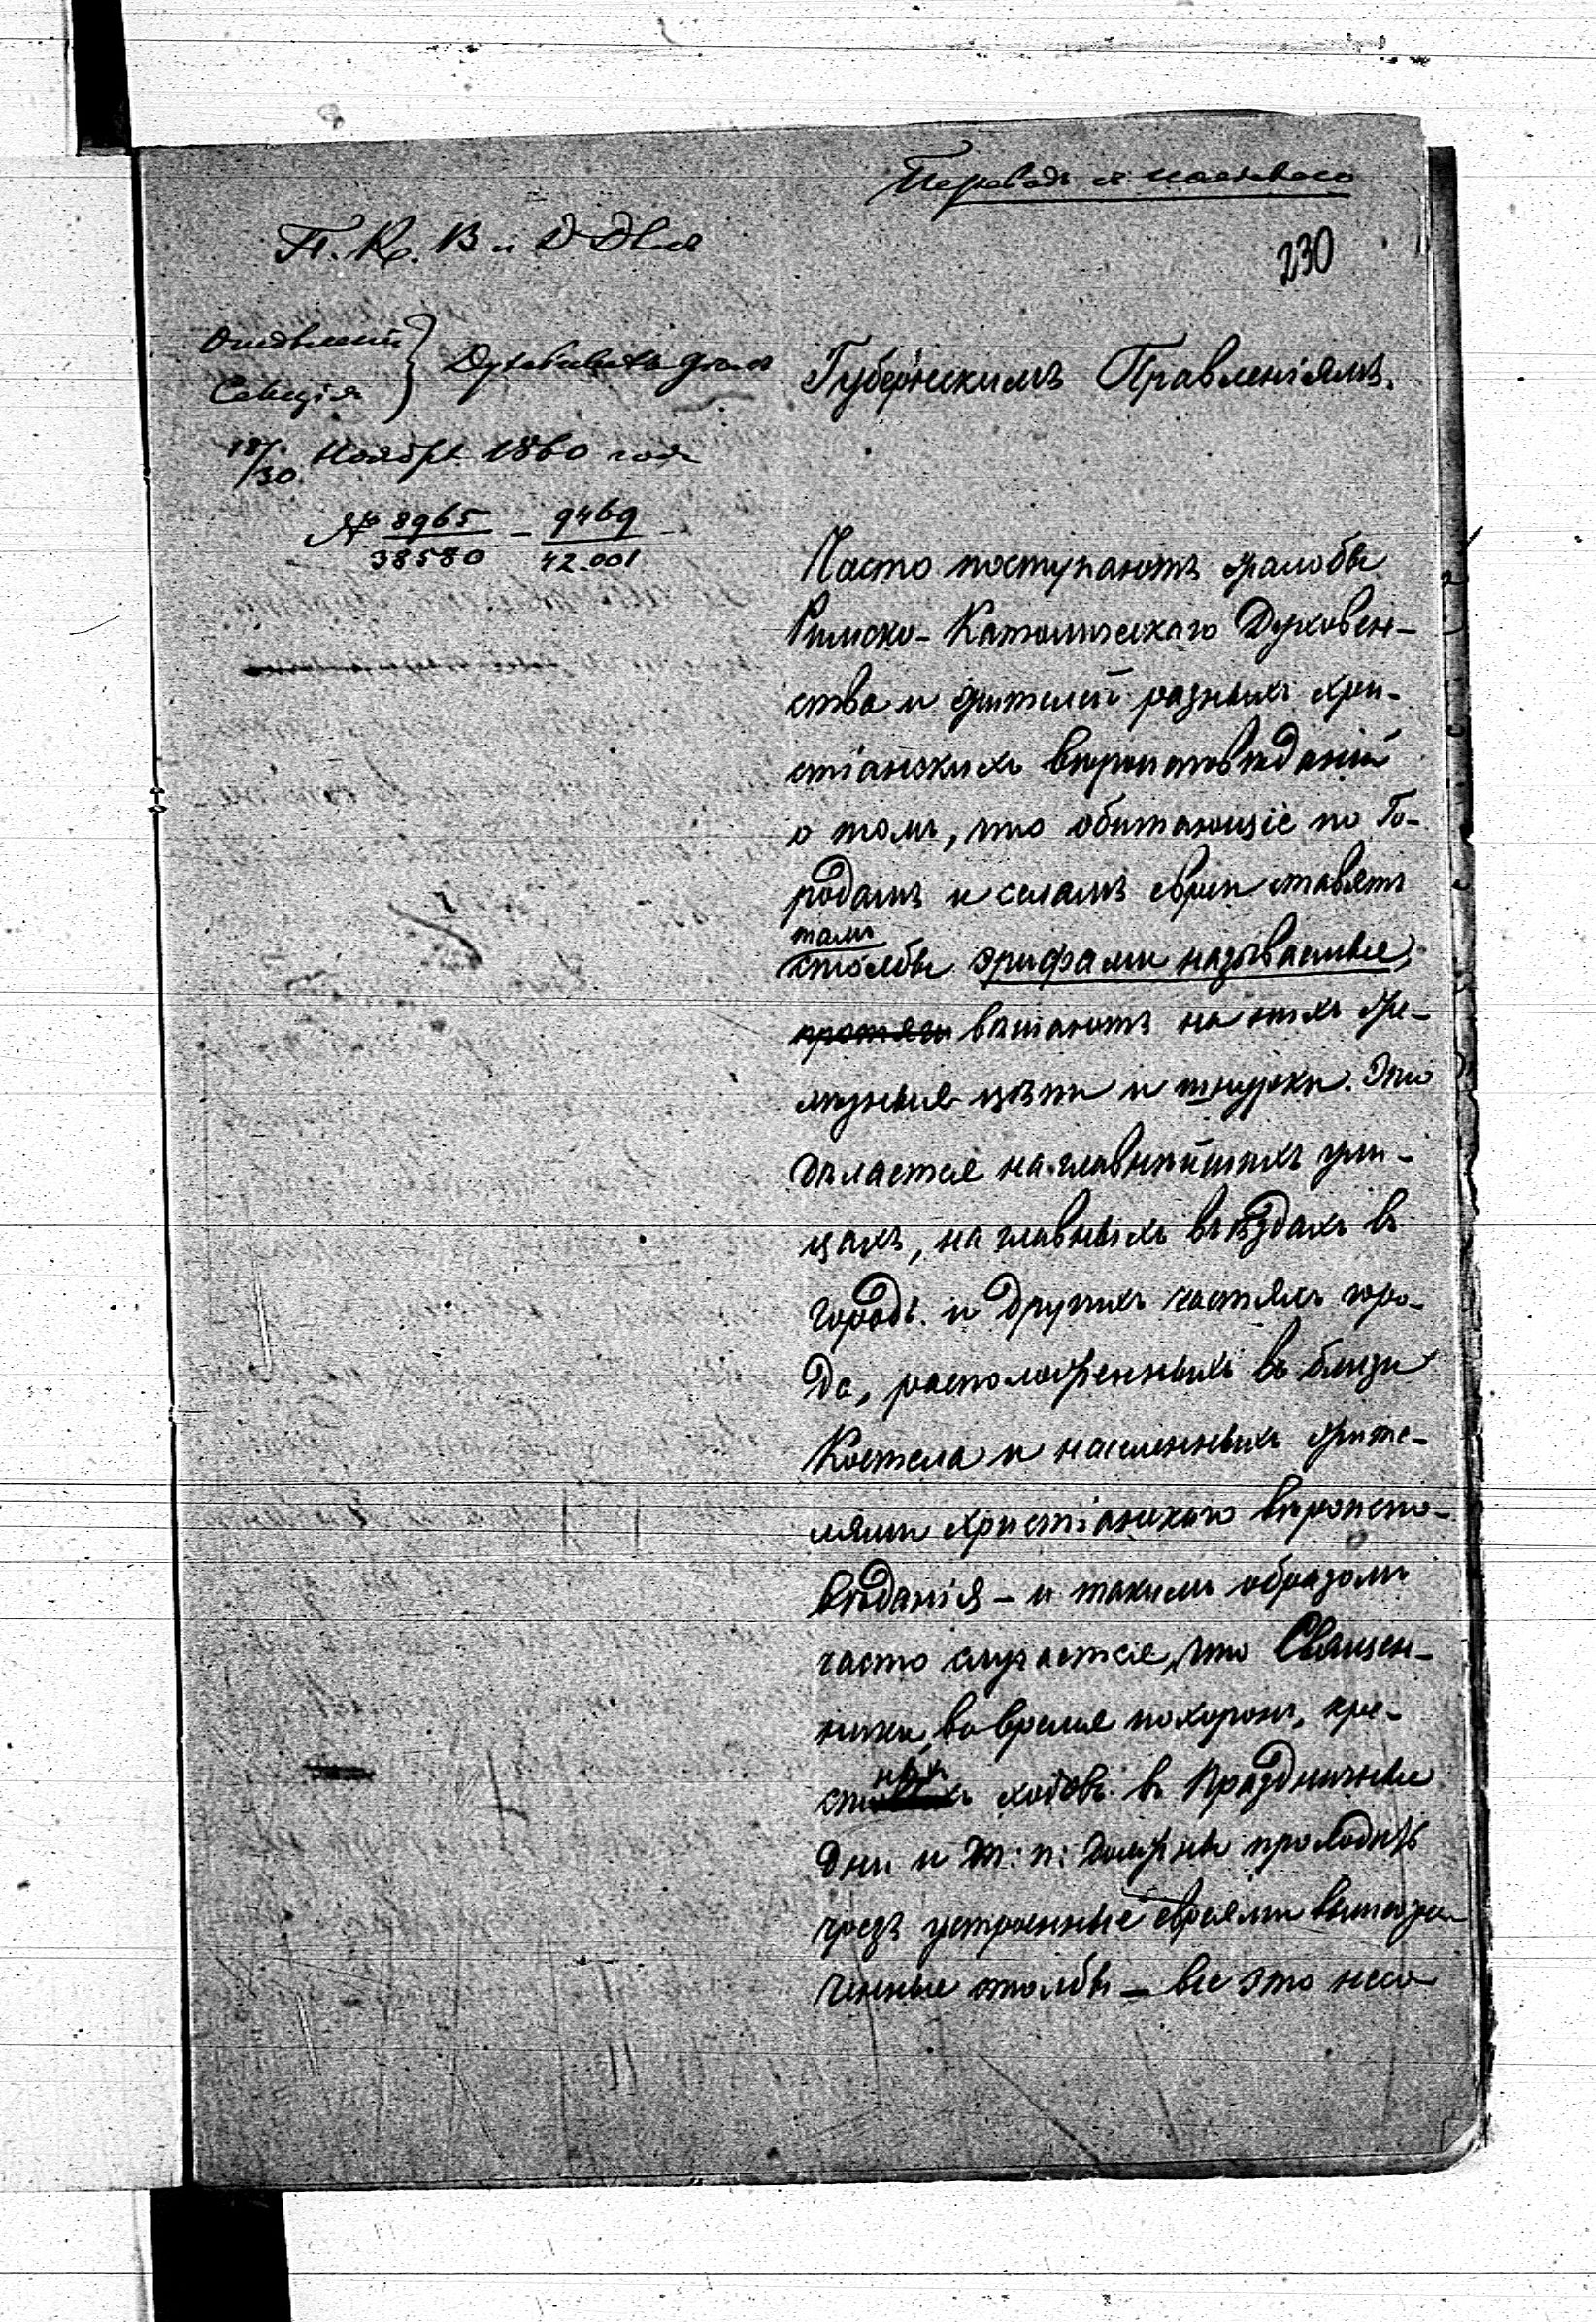 Переводъ съ польскаго
230
П. К. В. и Д. Дѣлъ
Отдѣленіе
Секція
Духовныхъ дѣлъ
18/30. Ноября 1860 года
№ 8965/38580 – 9469/42.001
Губернскимъ Правленіямъ.
Часто поступаютъ жалобы
Римско-Католическаго Духовен-
ства и жителей разныхъ хри-
стіанскихъ вѣроисповѣданій
о томъ, что обитающіе по Го-
родамъ и селамъ евреи ставятъ
тамъ
столбы эрифами называемые,
протяги вѣшаютъ на нихъ же-
лѣзные цѣпи и шнурки. Это
дѣлается на главнѣйшихъ ули-
цахъ, на главныхъ въѣздахъ въ
городъ и другихъ частяхъ горо-
да, расположенныхъ въ близи
Костела и населенныхъ жите-
лями христіанскаго вѣроиспо-
вѣданія – и такимъ образомъ
часто случается, что Священ-
ники, во время похоронъ, кре-
стныхъ ходовъ въ Праздничные
дни и т: п: должны проходить
чрезъ устроенные евреями вышеозна-
ченные столбы – все это